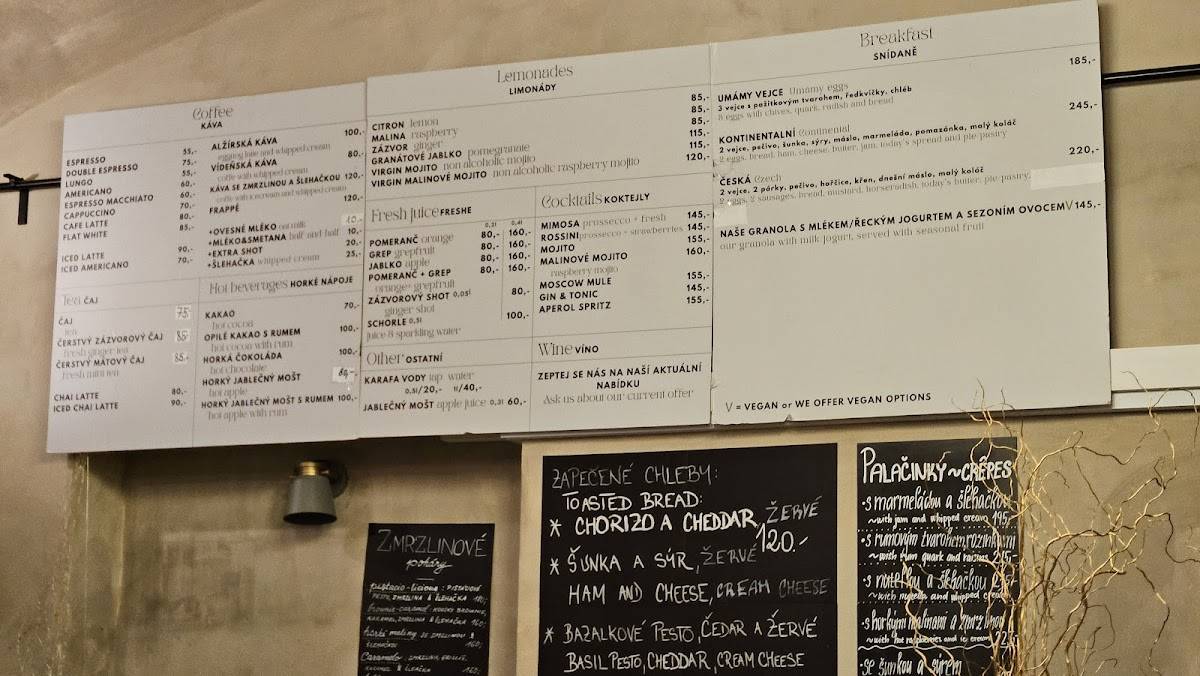 Coffee
KÁVA
ESPRESSO 55,-
DOUBLE ESPRESSO 75,-
LUNGO 55,-
AMERICANO 60,-
ESPRESSO MACCHIATO 60,-
CAPPUCCINO 70,-
CAFE LATTE 80,-
FLAT WHITE 85,-
ICED LATTE 90,-
ICED AMERICANO 70,-
ALŽÍRSKÁ KÁVA 100,-
eggnog latte and whipped cream
VÍDEŇSKÁ KÁVA 80,-
coffe with whipped cream
KÁVA SE ZMRZLINOU A ŠLEHAČKOU 120,-
coffe with icecream and whipped cream
FRAPPÉ 120,-
+OVESNÉ MLÉKO oat milk 10,-
+MLÉKO&SMETANA half and half 10,-
+EXTRA SHOT 20,-
+ŠLEHAČKA whipped cream 25,-
Tea ČAJ
ČAJ 75
tea
ČERSTVÝ ZÁZVOROVÝ ČAJ 85,-
fresh ginger tea
ČERSTVÝ MÁTOVÝ ČAJ 85,-
fresh mint tea
CHAI LATTE 80,-
ICED CHAI LATTE 90,-
Hot beverages HORKÉ NÁPOJE
KAKAO 70,-
hot cocoa
OPILÉ KAKAO S RUMEM 100,-
hot cocoa with rum
HORKÁ ČOKOLÁDA 100,-
hot chocolate
HORKÝ JABLEČNÝ MOŠT 80,-
hot apple
HORKÝ JABLEČNÝ MOŠT S RUMEM 100,-
hot apple with rum
Lemonades
LIMONÁDY
CITRON lemon 85,-
MALINA raspberry 85,-
ZÁZVOR ginger 85,-
GRANÁTOVÉ JABLKO pomegranate 115,-
VIRGIN MOJITO non alcoholic mojito 115,-
VIRGIN MALINOVÉ MOJITO non alcoholic raspberry mojito 120,-
Fresh Juice FRESHE
0,2l 0,4l
POMERANČ orange 80,- 160,-
GREP grepfruit 80,- 160,-
JABLKO apple 80,- 160,-
POMERANČ + GREP 80,- 160,-
orange+ grepfruit
ZÁZVOROVÝ SHOT 0,05l 80,-
ginger shot
SCHORLE 0,5l 100,-
juice & sparkling water
Other OSTATNÍ
KARAFA VODY tap water
0,5l/20,- 1l/40,-
JABLEČNÝ MOŠT apple juice 0,3l 60,-
Cocktails KOKTEJLY
MIMOSA prossecco + fresh 145,-
ROSSINI prossecco + strawberries 145,-
MOJITO 155,-
MALINOVÉ MOJITO 160,-
raspberry mojito
MOSCOW MULE 155,-
GIN & TONIC 145,-
APEROL SPRITZ 155,-
Wine VÍNO
ZEPTEJ SE NÁS NA NAŠÍ AKTUÁLNÍ
NABÍDKU
Ask us about our current offer
Breakfast
SNÍDANĚ
UMÁMY VEJCE Umamy eggs 185,-
3 vejce s pažitkovým tvarohem, ředkvičky, chléb
3 eggs with chives, quark, radish and bread
KONTINENTALNÍ Continental 245,-
2 vejce, pečivo, šunka, sýry, máslo, marmeláda, pomazánka, malý koláč
2 eggs, bread, ham, cheese, butter, jam, today's spread and pie/pastry
ČESKÁ Czech 220,-
2 vejce, 2 párky, pečivo, hořčice, křen, dnešní máslo, malý koláč
2 eggs, 2 sausages, bread, mustard, horseradish, today's butter, pie/pastry
NAŠE GRANOLA S MLÉKEM/ŘECKÝM JOGURTEM A SEZONÍM OVOCEM V 145,-
our granola with milk/jogurt, served with seasonal fruit
V = VEGAN or WE OFFER VEGAN OPTIONS
ZMRZLINOVÉ
poháry
pistacio-licious: PISTÁCIOVÉ
PESTO, ZMRZLINA & ŠLEHAČKA 180,-
brownie-caramel: HORKÉ BROWNIE,
KARAMEL, ZMRZLINA & ŠLEHAČKA 160,-
horké maliny SE ZMRZLINOU &
ŠLEHAČKOU 160,-
Caramelo: ZMRZLINA,
KARAMEL & ŠLEHAČKA 160,-
ZAPEČENÉ CHLEBY:
TOASTED BREAD:
* CHORIZO A CHEDDAR, ŽERVÉ
120.-
* ŠUNKA A SÝR, ŽERVÉ
HAM AND CHEESE, CREAM CHEESE
* BAZALKOVÉ PESTO, ČEDAR A ŽERVÉ
BASIL PESTO, CHEDDAR, CREAM CHEESE
PALAČINKY ~ CRÊPES
• s marmeládou a šlehačkou
~ with jam and whipped cream 195,-
• s rumovým tvarohem, rozinkami
~ with rum quark and raisins
• s nutellou a šlehačkou
~ with nutella and whipped cream
• s horkými malinami a zmrzlinou
~ with hot raspberries and ice cream
• se šunkou a sýrem